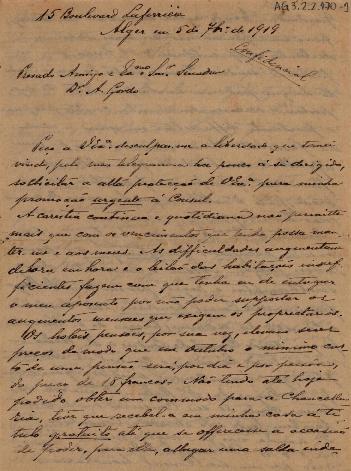 AG3.2.2.170-1
15 Boulevard Laferrière
Alger em 5 de 7bro de 1919
Confidencial
Prezado Amigo e Exmo Snr. Senador
Dr. A. Gordo
Peço a V. Exa. desculpar-me a liberdade que tomei
vindo, pelo meu telegramma ha pouco á si dirigido,
solicitar a alta protecção de V. Exa. para minha
promoção urgente á Consul.
A carestia continua e quotidiana não permitte
mais que com os vencimentos que tenho possa man-
ter-me e aos meus. As difficuldades augmentam
de hora em hora e o leilão das habitações insuf-
ficientes fazem com que tenha eu de entregar
o meu aposento por não poder supportar os
augmentos mensaes que exigem os proprietarios.
Os hoteis pensões, por sua vez, elevam seus
preços de modo que em Outubro o minimo cus-
to de uma pensão será, por dia e por pessôa,
do preço de 18 francos. Não tendo até hoje
podido obter um commodo para a Chancella-
ria, tive que recebel-a em minha casa a ti-
tulo gratuito até que se offerecesse a occasião
de poder, para ella, allugar uma salla inde-